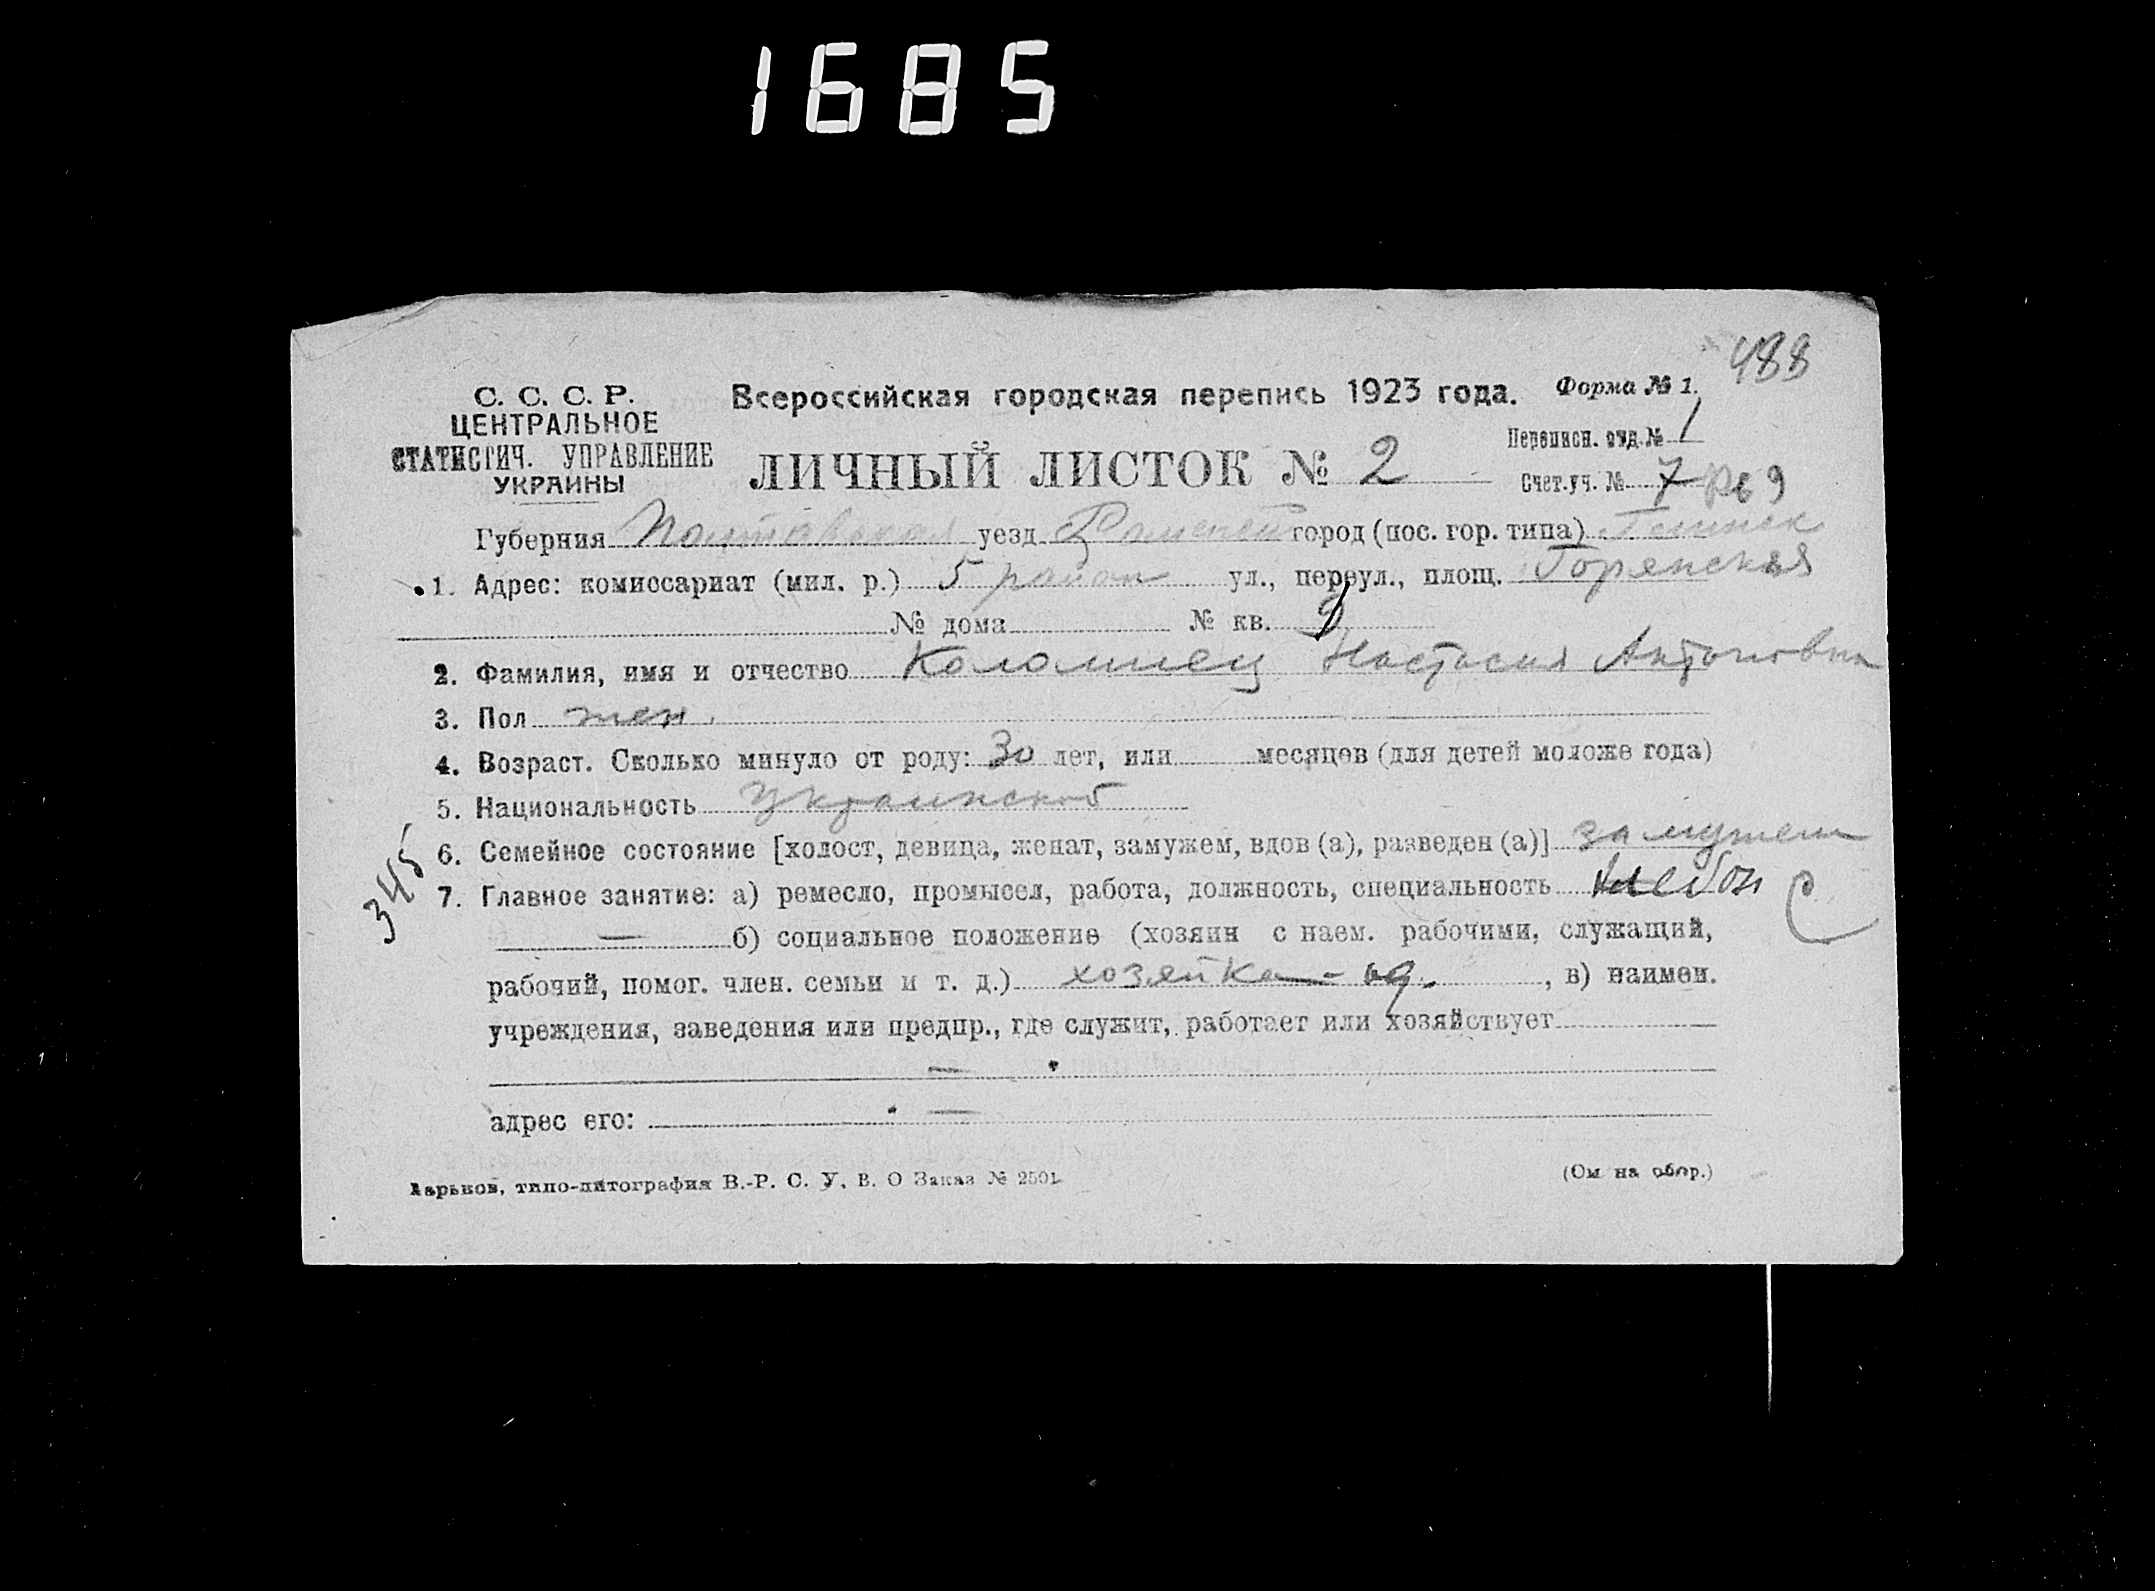 1685
488
С. С. С. Р.
ЦЕНТРАЛЬНОЕ
СТАТИСТИЧ. УПРАВЛЕНИЕ
УКРАИНЫ
Всероссийская городская перепись 1923 года.
Форма № 1.
ЛИЧНЫЙ ЛИСТОК № 2
Переписн. отд. № 1
Счет. уч. № 7 9
Губерния Полтавская уезд Роменский город (пос. гор. типа) Глинск
1. Адрес: комиссариат (мил. р.) 5 район ул., переул., площ. Горянская
№ дома № кв. 9
2. Фамилия, имя и отчество Коломиец Настасия Антоновна
3. Пол жен.
4. Возраст. Сколько минуло от роду: 30 лет, или месяцев (для детей моложе года)
5. Национальность Украинской
6. Семейное состояние [холост, девица, женат, замужем, вдов (а), разведен (а)] замужем
345
7. Главное занятие: а) ремесло, промысел, работа, должность, специальность хлебоп С
— б) социальное положение (хозяин с наем. рабочими, служащий,
рабочий, помог. член. семьи и т. д.) хозяйка - , в) наимен.
учреждения, заведения или предпр., где служит, работает или хозяйствует
—
адрес его: —
Харьков, типо-литография В.-Р. С. У. В. О Заказ № 2501
(См на обор.)